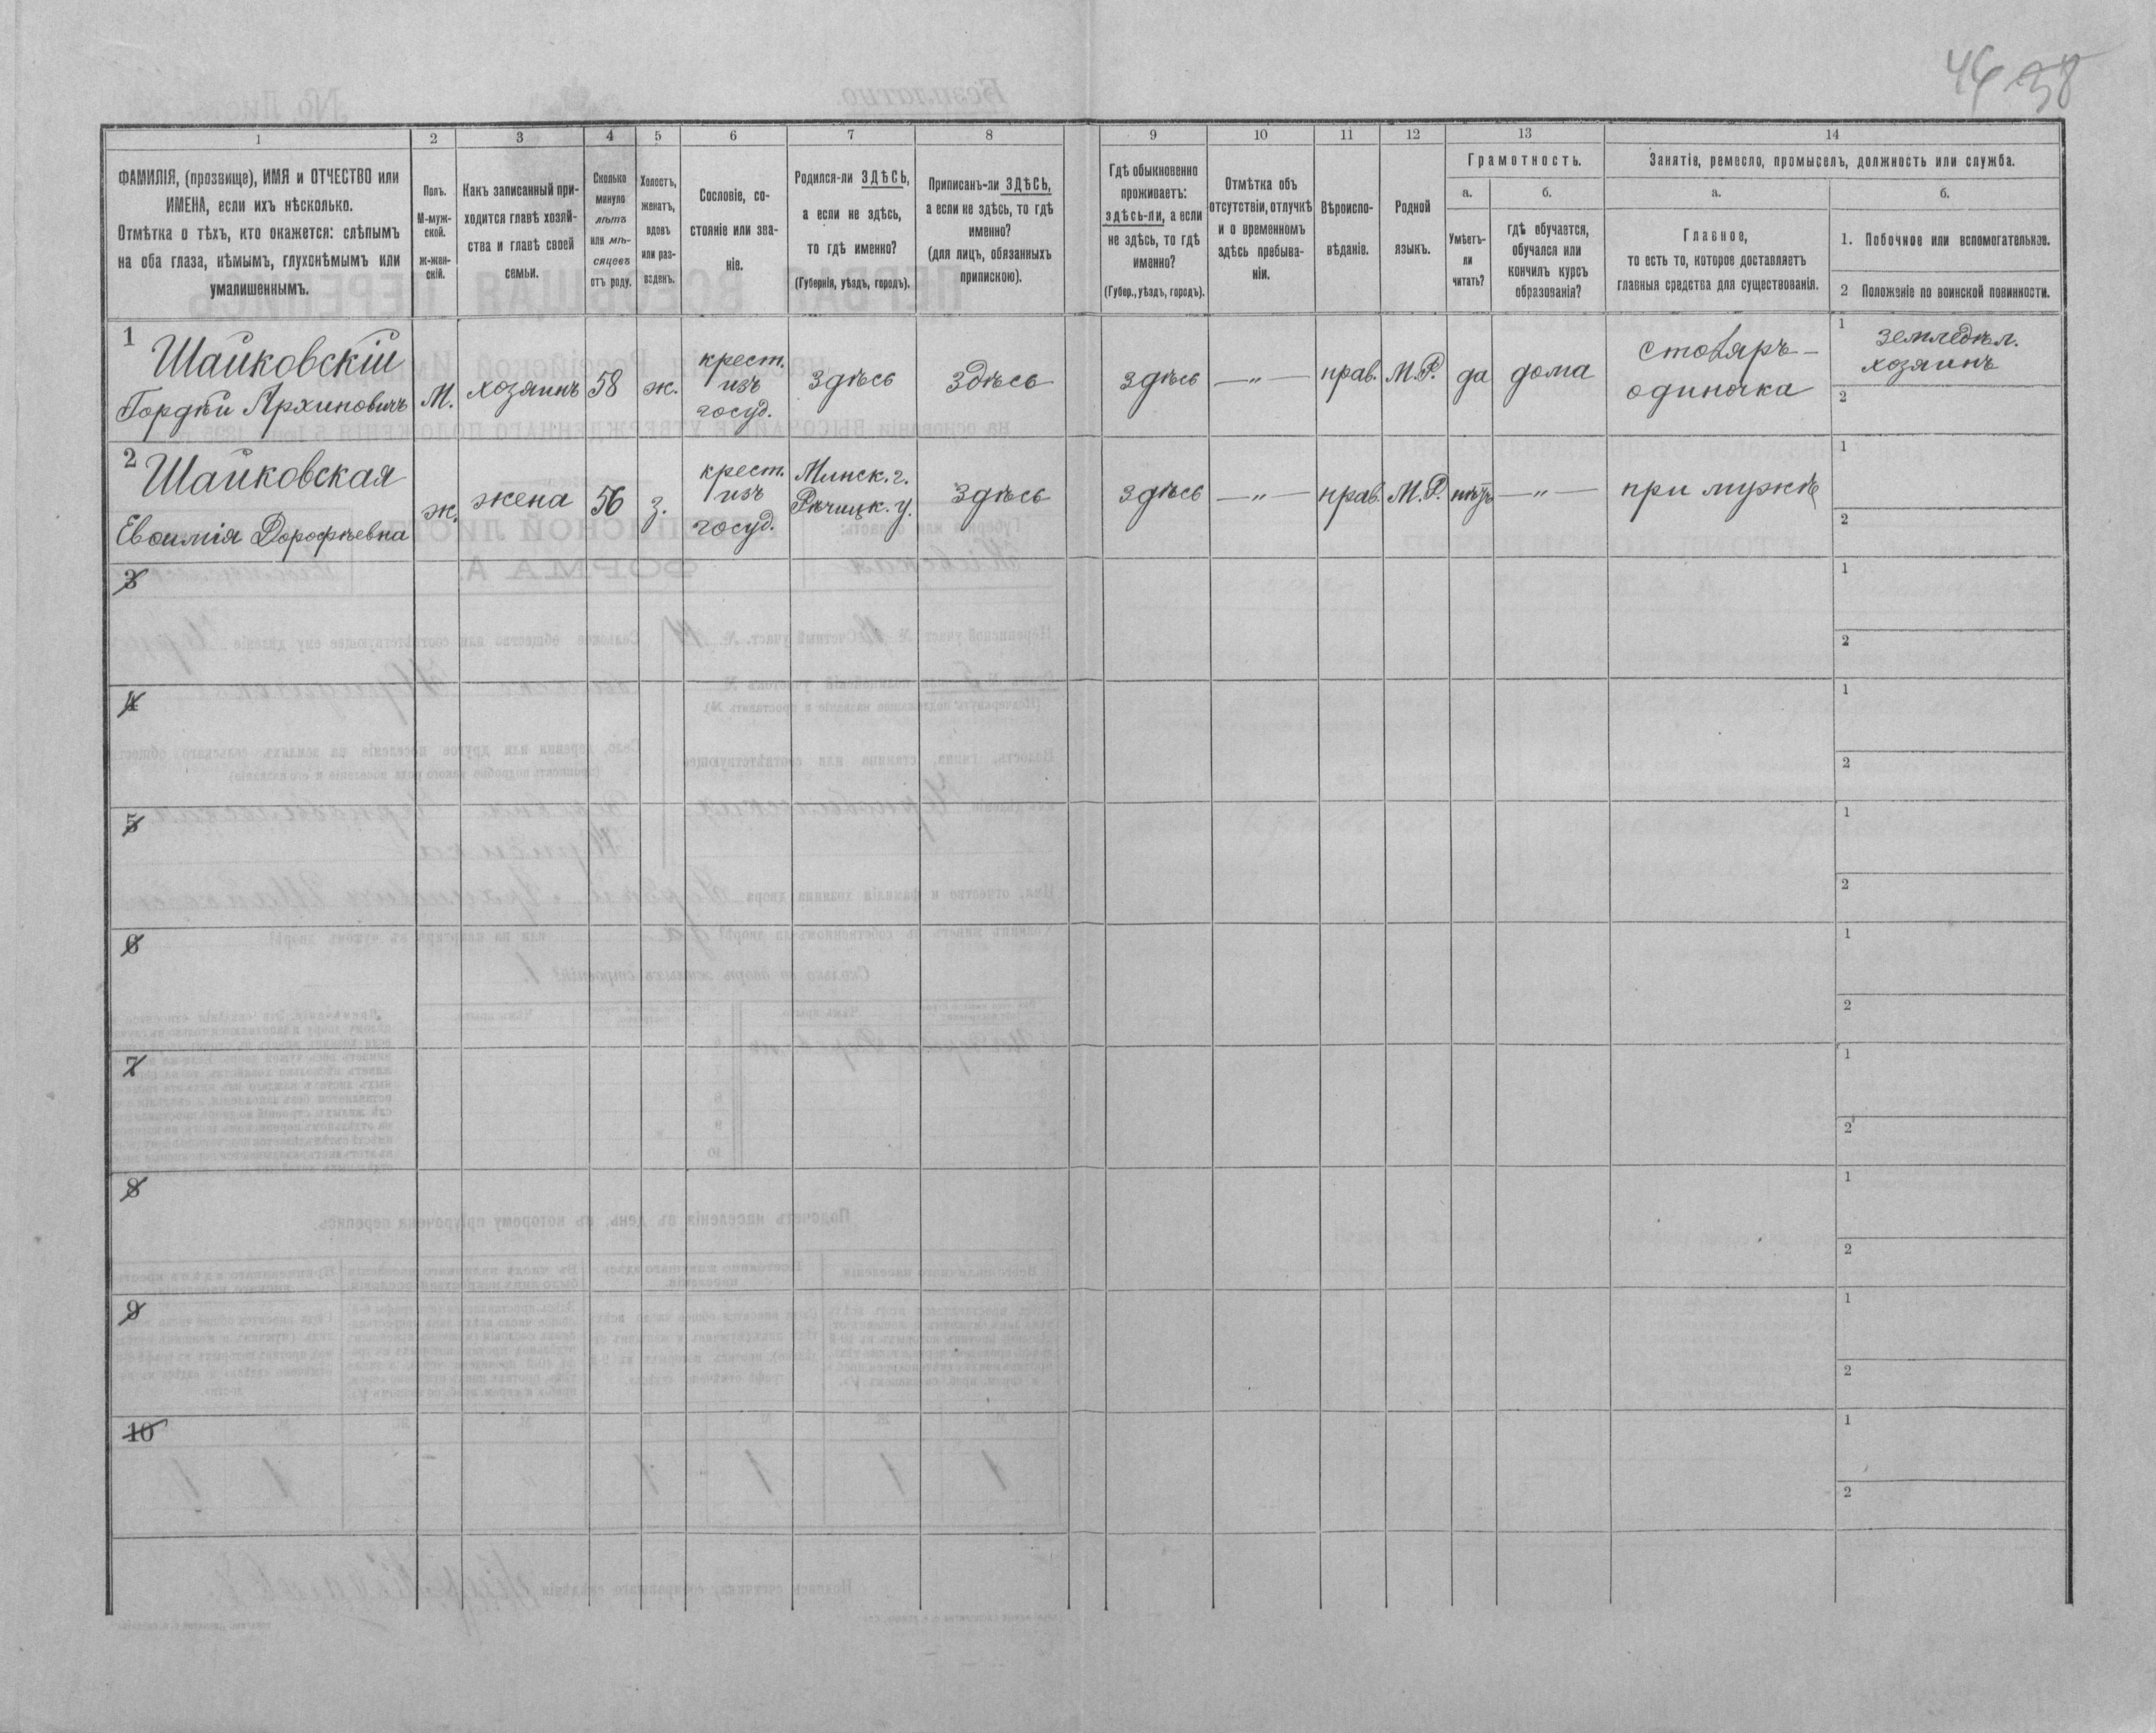 44 38
1
2
3
4
5
6
7
8
9
10
11
12
13
14
ФАМИЛІЯ, (прозвище), ИМЯ и ОТЧЕСТВО или
ИМЕНА, если ихъ нѣсколько.
Отмѣтка о тѣхъ, кто окажется: слѣпымъ
на оба глаза, нѣмымъ, глухонѣмымъ или
умалишеннымъ.
Полъ.
М-муж-
ской.
Ж-жен-
скій.
Какъ записанный при-
ходится главѣ хозяй-
ства и главѣ своей
семьи.
Сколько
минуло
лѣтъ
или мѣ-
сяцевъ
отъ роду.
Холостъ,
женатъ,
вдовъ
или раз-
веденъ.
Сословіе, со-
стояніе или зва-
ніе.
Родился-ли ЗДѢСЬ,
а если не здѣсь,
то гдѣ именно?
(Губернія, уѣздъ, городъ).
Приписанъ-ли ЗДѢСЬ,
а если не здѣсь, то гдѣ
именно?
(для лицъ, обязанныхъ
припискою).
Гдѣ обыкновенно
проживаетъ:
здѣсь-ли, а если
не здѣсь, то гдѣ
именно?
(Губер., уѣздъ, городъ).
Отмѣтка объ
отсутствіи, отлучкѣ
и о временномъ
здѣсь пребыва-
ніи.
Вѣроиспо-
вѣданіе.
Родной
языкъ.
Грамотность.
а.
Умѣетъ-
ли
читать?
б.
гдѣ обучается,
обучался или
кончилъ курсъ
образованія?
Занятіе, ремесло, промыселъ, должность или служба.
а.
Главное,
то есть то, которое доставляетъ
главныя средства для существованія.
б.
1. Побочное или вспомогательное.
2 Положеніе по воинской повинности.
1
Шайковскій
Гордѣй Архиповичъ
М.
хозяинъ
58
ж.
крест.
изъ
госуд.
здѣсь
здѣсь
здѣсь
— „ —
прав.
М.Р.
да
дома
столяръ –
одиночка
1
земледѣл.
хозяинъ
2
2
Шайковская
Евѳимія Дорофѣевна
ж.
жена
56
з.
крест.
изъ
госуд.
Минск. г.
Рѣчицк. у.
здѣсь
здѣсь
— „ —
прав.
М.Р.
нѣтъ
— „ —
при мужѣ
1
2
3
1
2
4
1
2
5
1
2
6
1
2
7
1
2
8
1
2
9
1
2
10
1
2